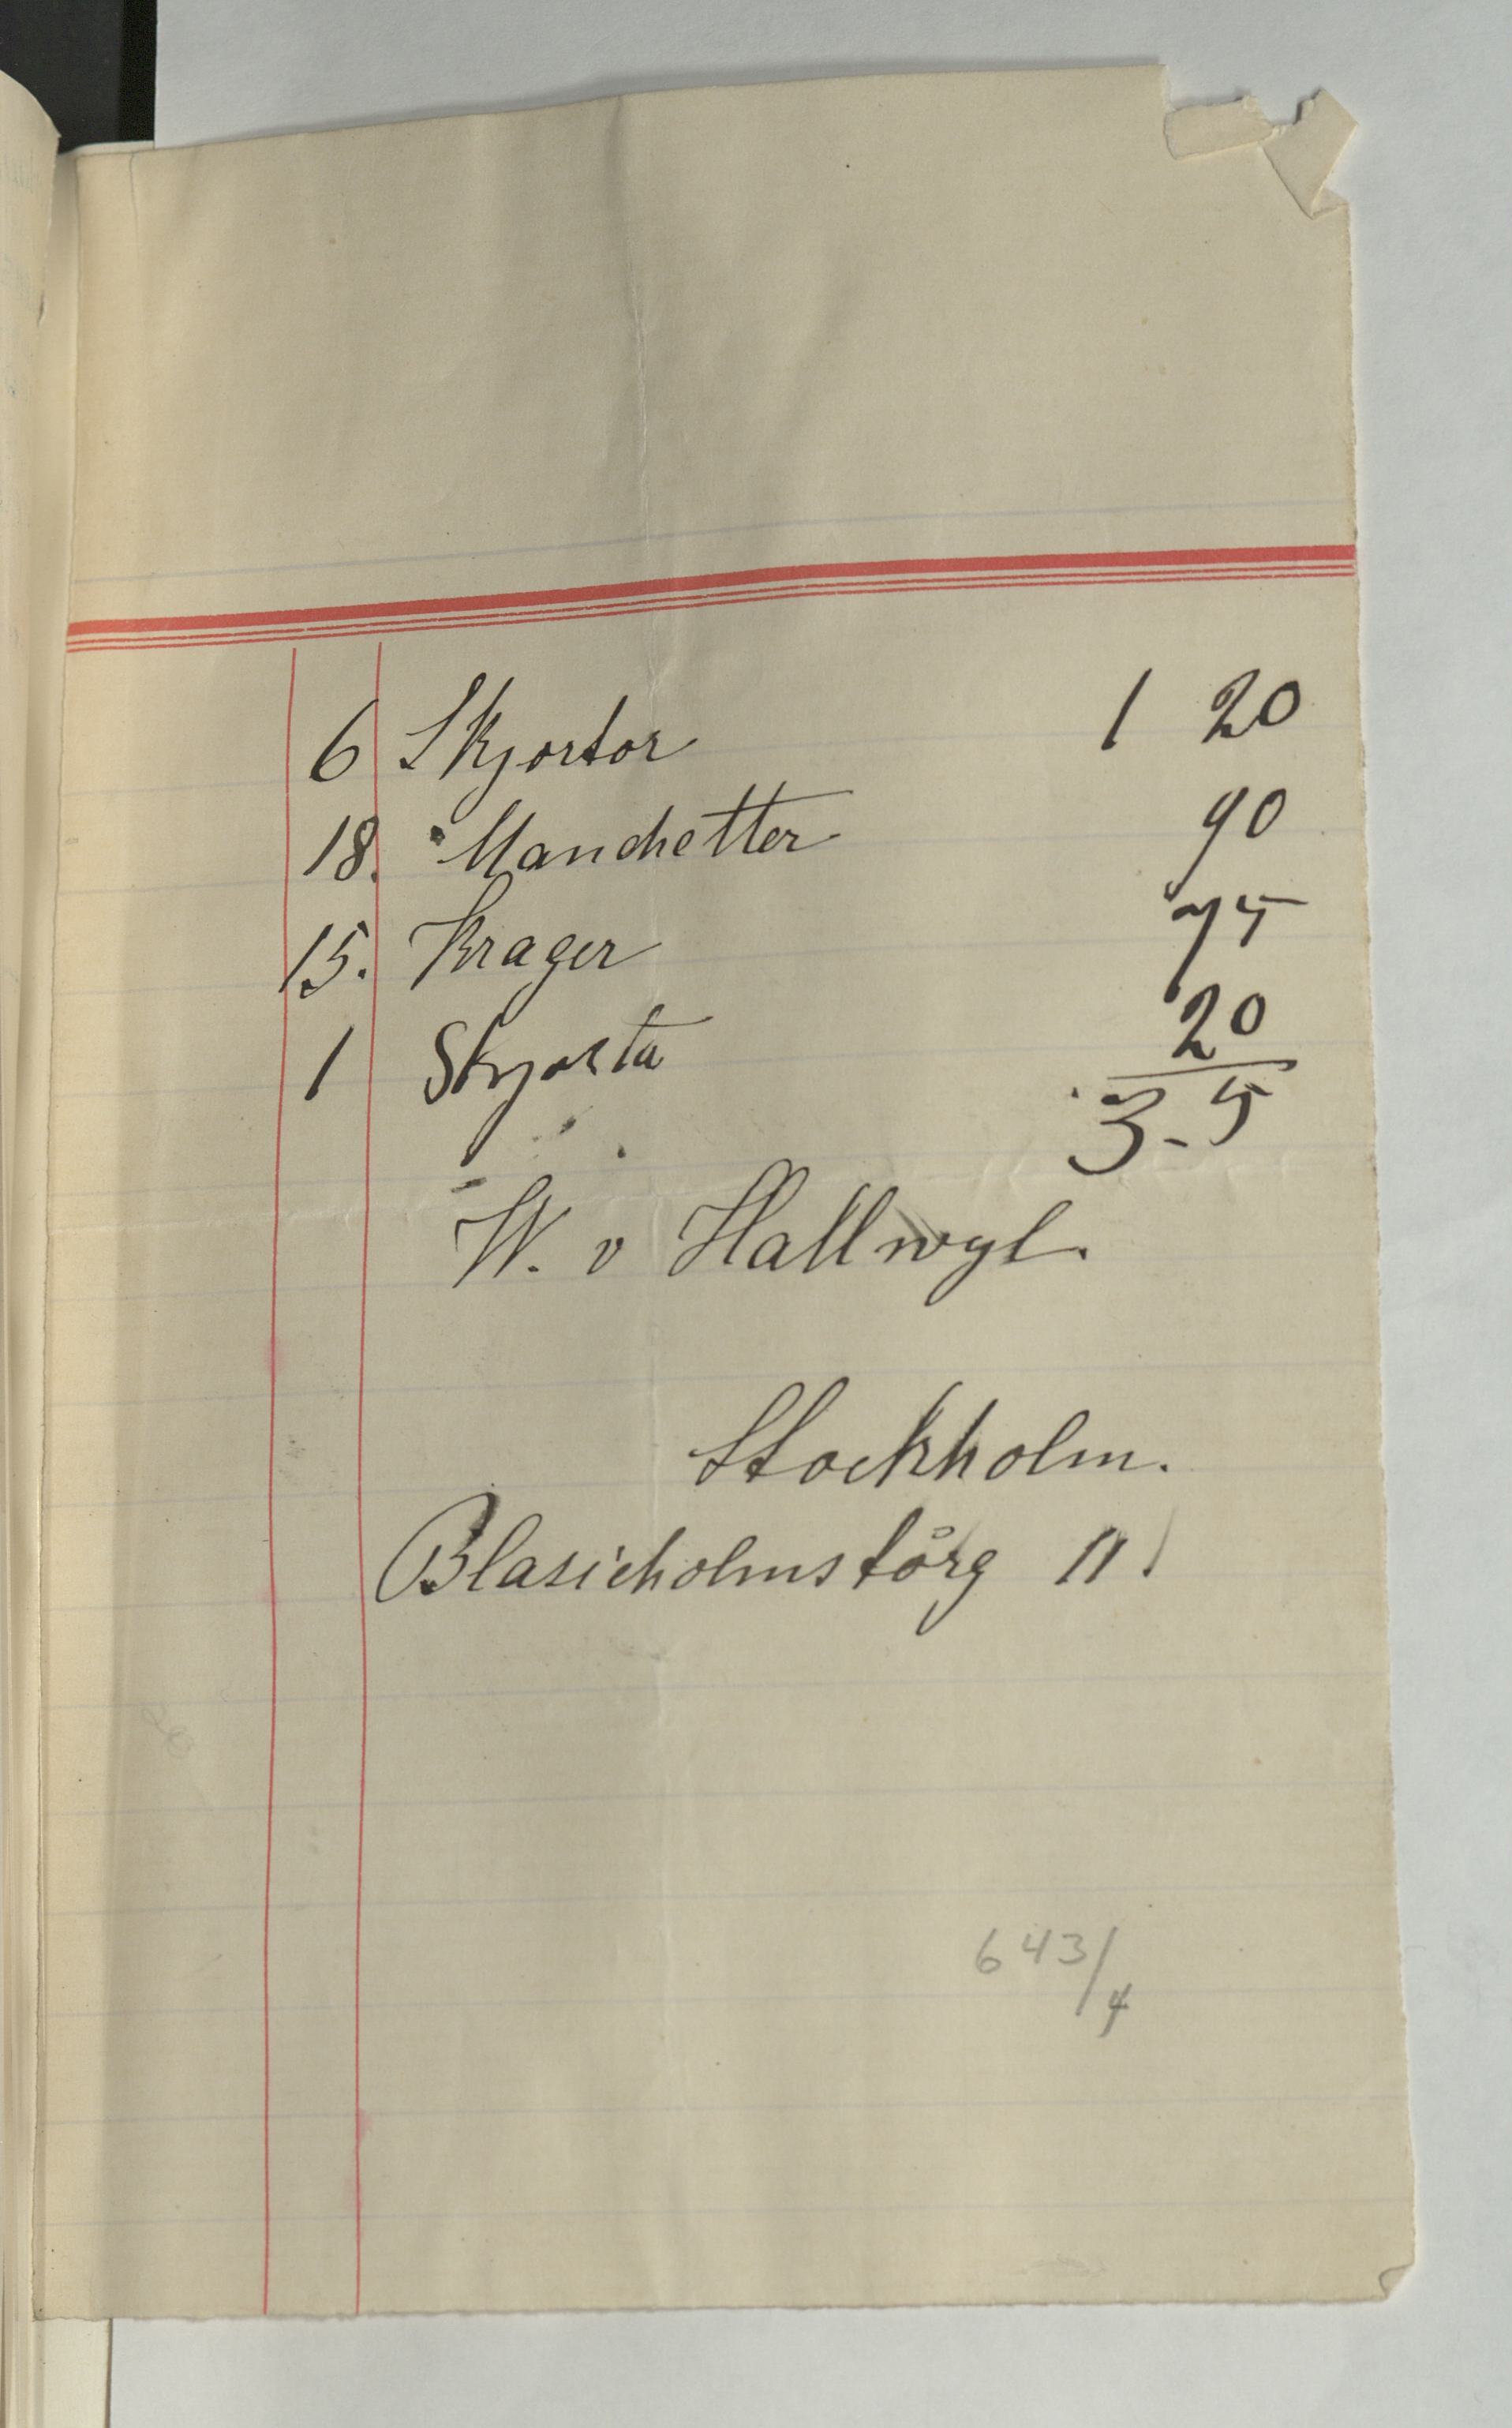 6 Skjortor 1 20
18. Manchetter 90
15. Krager 75
1 Skjorta 20
3-5
W. v Hallwyl.
Stockholm.
Blasieholmstorg 11.
643/4